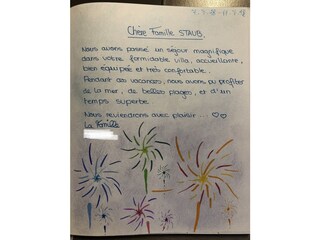 Chère Famille STAUB,
Nous avons passé un séjour magnifique
dans votre formidable villa, accueillante,
bien équipée et très confortable.
Pendant ces vacances, nous avons pu profiter
de la mer, de belles plages, et d'un
temps superbe.
Nous reviendrons avec plaisir...
La famille